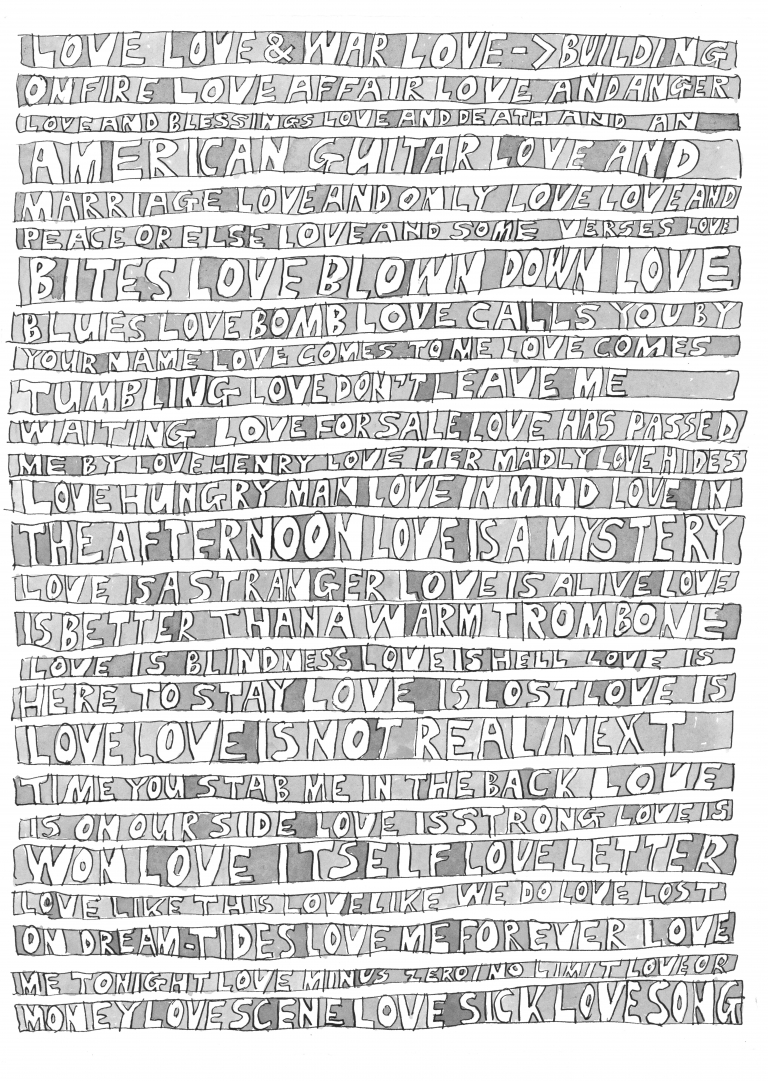 LOVE LOVE & WAR LOVE -> BUILDING
ON FIRE LOVE AFFAIR LOVE AND ANGER
LOVE AND BLESSINGS LOVE AND DEATH AND AN
AMERICAN GUITAR LOVE AND
MARRIAGE LOVE AND ONLY LOVE LOVE AND
PEACE OR ELSE LOVE AND SOME VERSES LOVE
BITES LOVE BLOWN DOWN LOVE
BLUES LOVE BOMB LOVE CALLS YOU BY
YOUR NAME LOVE COMES TO ME LOVE COMES
TUMBLING LOVE DON'T LEAVE ME
WAITING LOVE FOR SALE LOVE HAS PASSED
ME BY LOVE HENRY LOVE HER MADLY LOVE HIDES
LOVE HUNGRY MAN LOVE IN MIND LOVE IN
THE AFTERNOON LOVE IS A MYSTERY
LOVE IS A STRANGER LOVE IS ALIVE LOVE
IS BETTER THAN A WARM TROMBONE
LOVE IS BLINDNESS LOVE IS HELL LOVE IS
HERE TO STAY LOVE IS LOST LOVE IS
LOVE LOVE IS NOT REAL/NEXT
TIME YOU STAB ME IN THE BACK LOVE
IS ON OUR SIDE LOVE IS STRONG LOVE IS
WON LOVE ITSELF LOVE LETTER
LOVE LIKE THIS LOVE LIKE WE DO LOVE LOST
ON DREAM-TIDES LOVE ME FOREVER LOVE
ME TONIGHT LOVE MINUS ZERO/NO LIMIT LOVE OR
MONEY LOVE SCENE LOVE SICK LOVE SONG